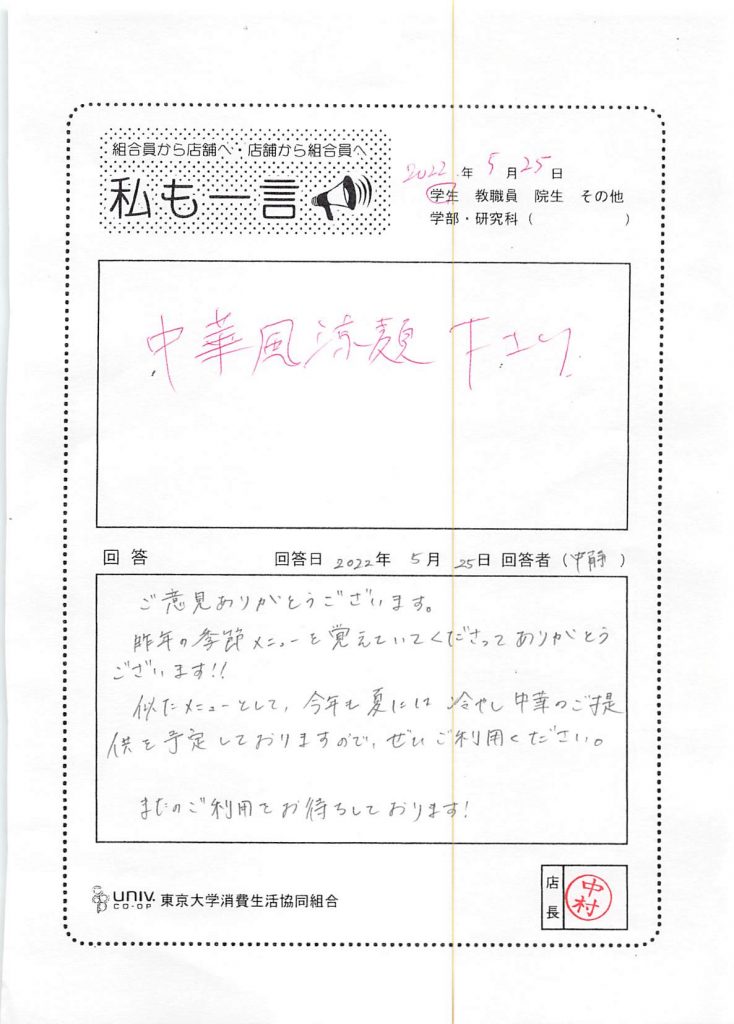 組合員から店舗へ 店舗から組合員へ
私も一言
2022 年 5 月 25 日
学生 教職員 院生 その他
学部・研究科 ( )
中華風涼麺
回答 回答日 2022年 5月 25日 回答者 (中静)
ご意見ありがとうございます。
昨年の季節メニューを覚えていてくださってありがとう
ございます!!
似たメニューとして、今年も夏には冷やし中華のご提
供を予定しておりますので、ぜひご利用ください。
またのご利用をお待ちしております!
UNIV. CO-OP 東京大学消費生活協同組合
店長 中村